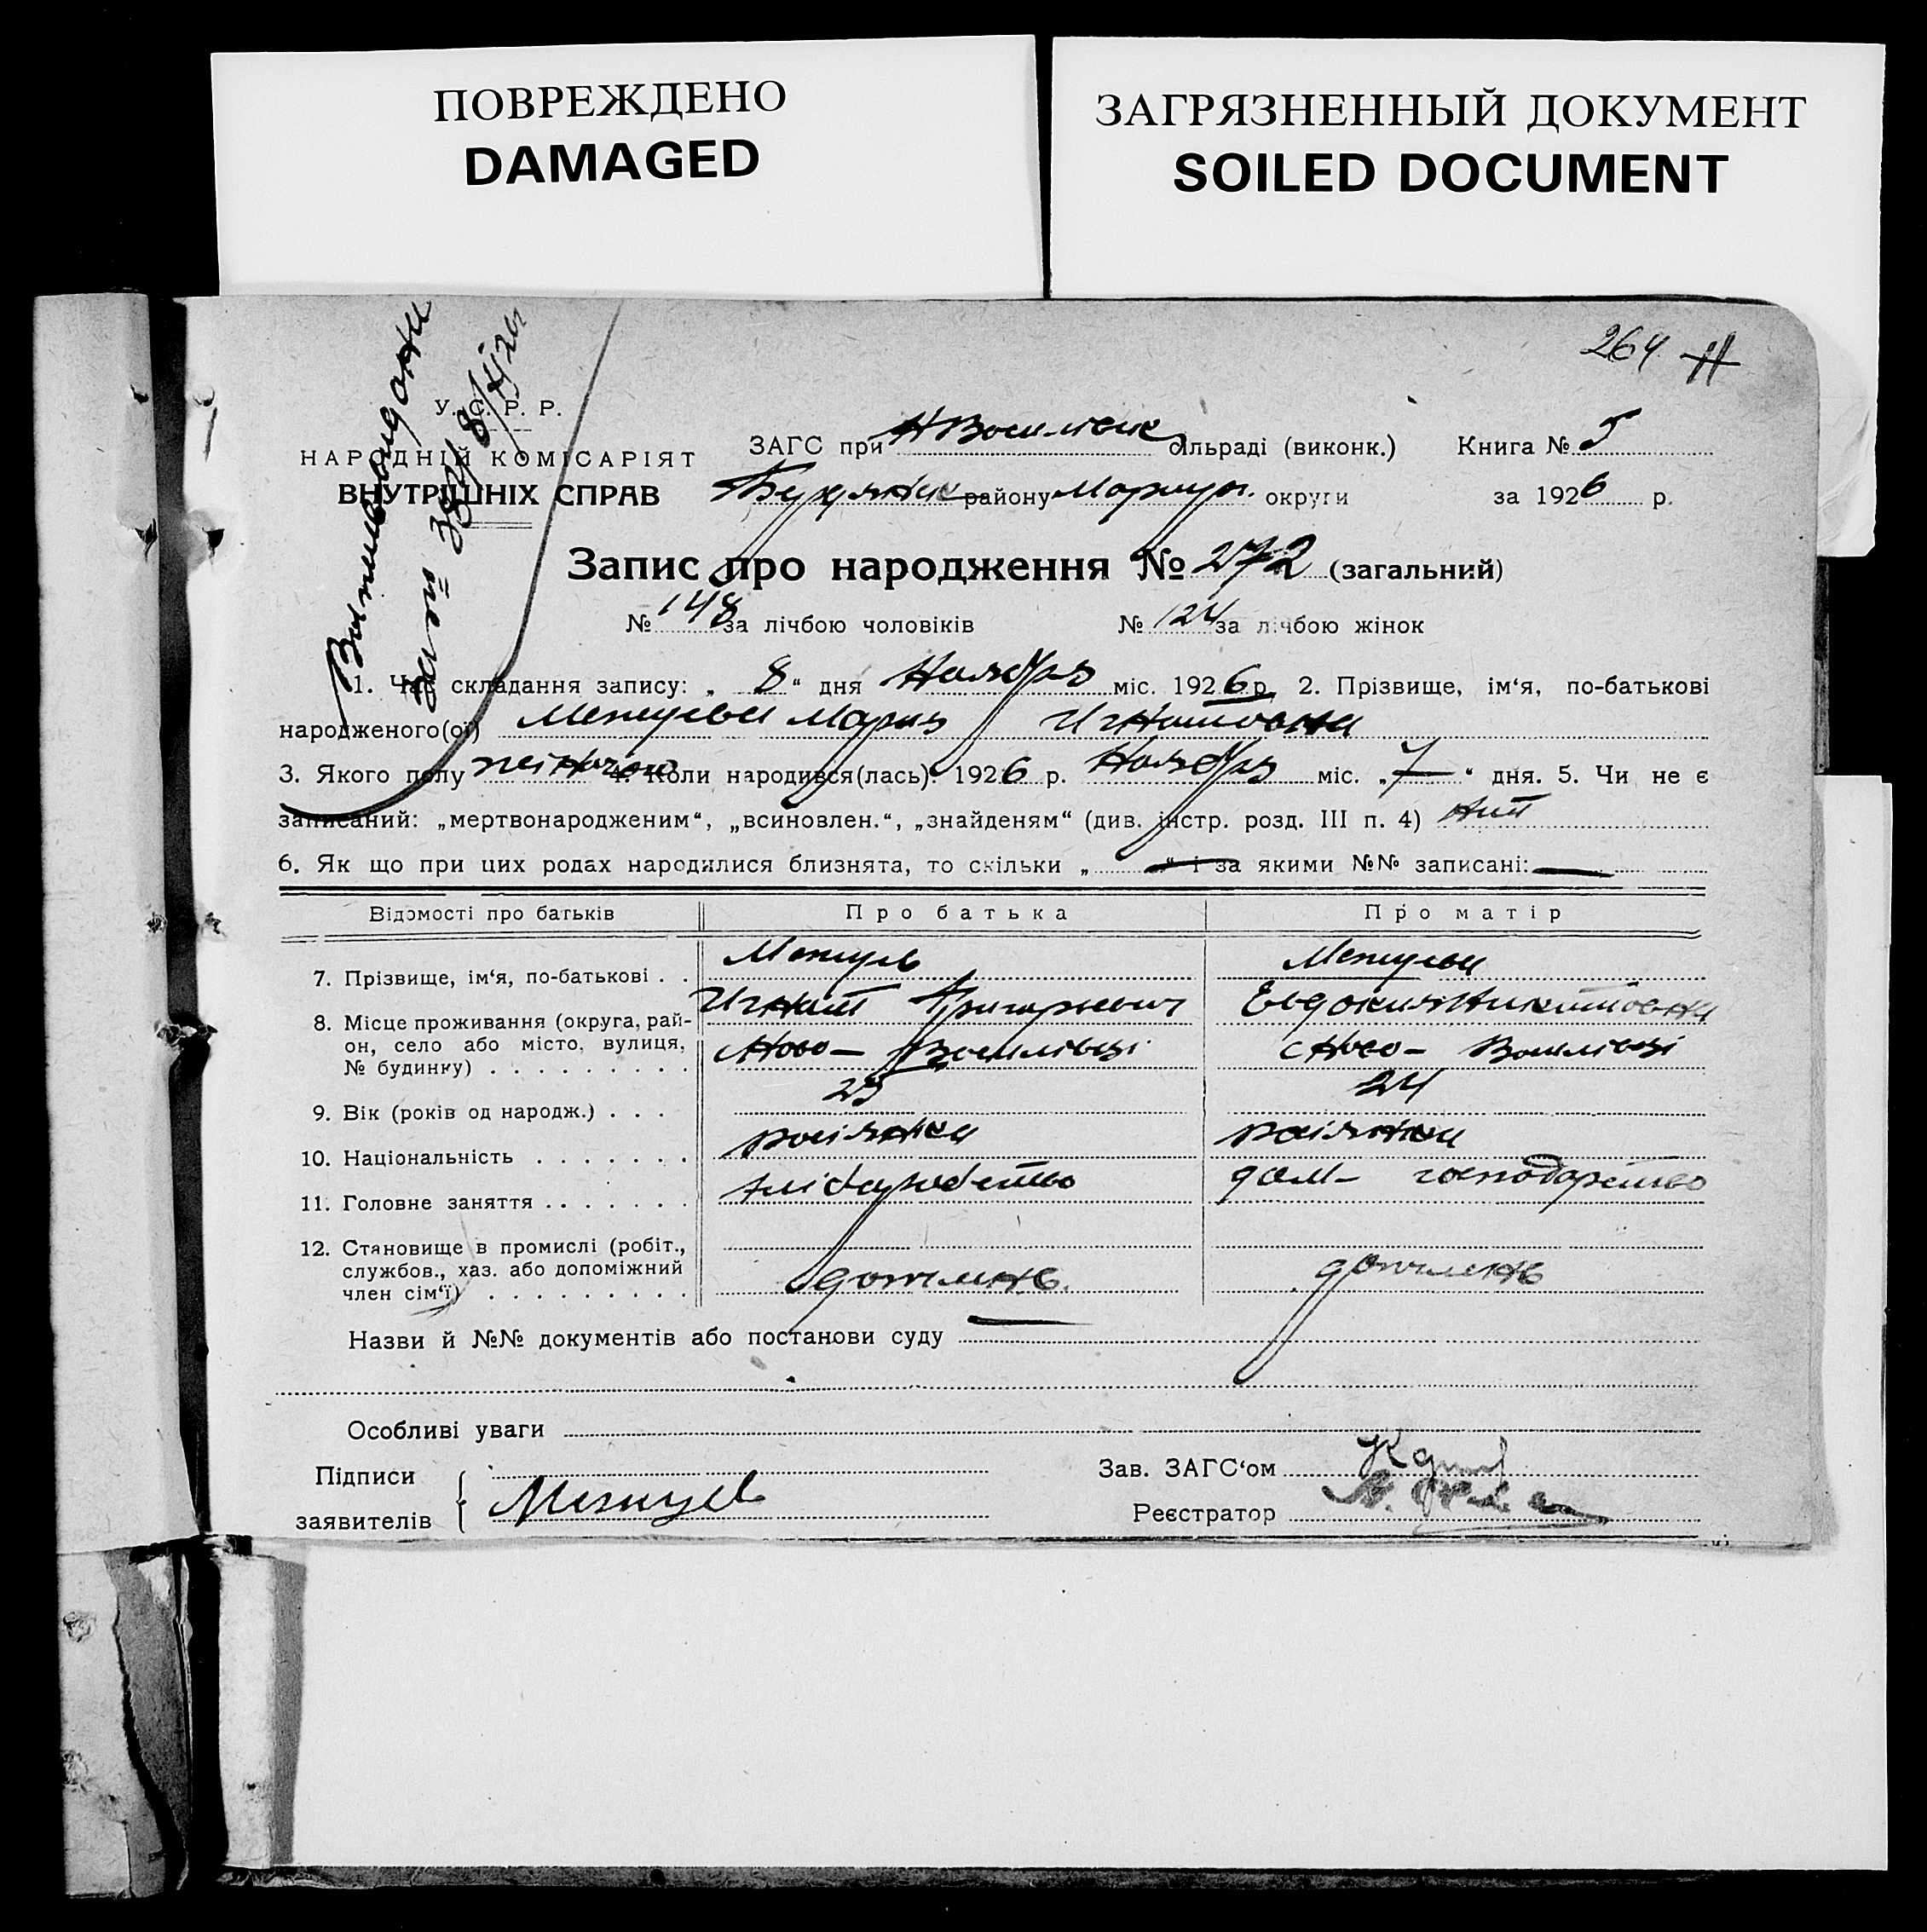 ПОВРЕЖДЕНО
DAMAGED
ЗАГРЯЗНЕННЫЙ ДОКУМЕНТ
SOILED DOCUMENT
264
У. С. Р. Р.
НАРОДНІЙ КОМІСАРІЯТ
ВНУТРІШНІХ СПРАВ
ЗАГС при сільраді (виконк.) Книга № 5
району Мариуп. округи за 1926 р.
Запис про народження № 272 (загальний)
№ 148 за лічбою чоловіків № 124 за лічбою жінок
1. Час складання запису: „ 8 “ дня Ноября міс. 1926 р. 2. Прізвище, ім‘я, по-батькові
народженого(ої) Межуева Мария Игнатовна
3. Якого полу жіночого 4. Коли народився(лась). 1926 р. Ноября міс. „ 7 “ дня. 5. Чи не є
записаний: „мертвонародженим“, „всиновлен.“, „знайденям“ (див. інстр. розд. III п. 4)
6. Як що при цих родах народилися близнята, то скільки „ “ і за якими №№ записані:
Відомості про батьків Про батька Про матір
7. Прізвище, ім‘я, по-батькові . . Межуев Межуева
Игнат Григорьевич Евдокия Никитовна
8. Місце проживання (округа, рай-
он, село або місто, вулиця, Ново- Василівці Ново- Василівці
№ будинку) . . . . . . . . .
9. Вік (років од народж.) . . . 25 24
10. Національність . . . . . . . росіянка росіянка
11. Головне заняття . . . . . . . хліборобство дом- господарство
12. Становище в промислі (робіт.,
службов., хаз. або допоміжний
член сім‘ї) . . . . . . . . .
Назви й №№ документів або постанови суду
Особливі уваги
Підписи Зав. ЗАГС‘ом
заявителів Межуев Реєстратор